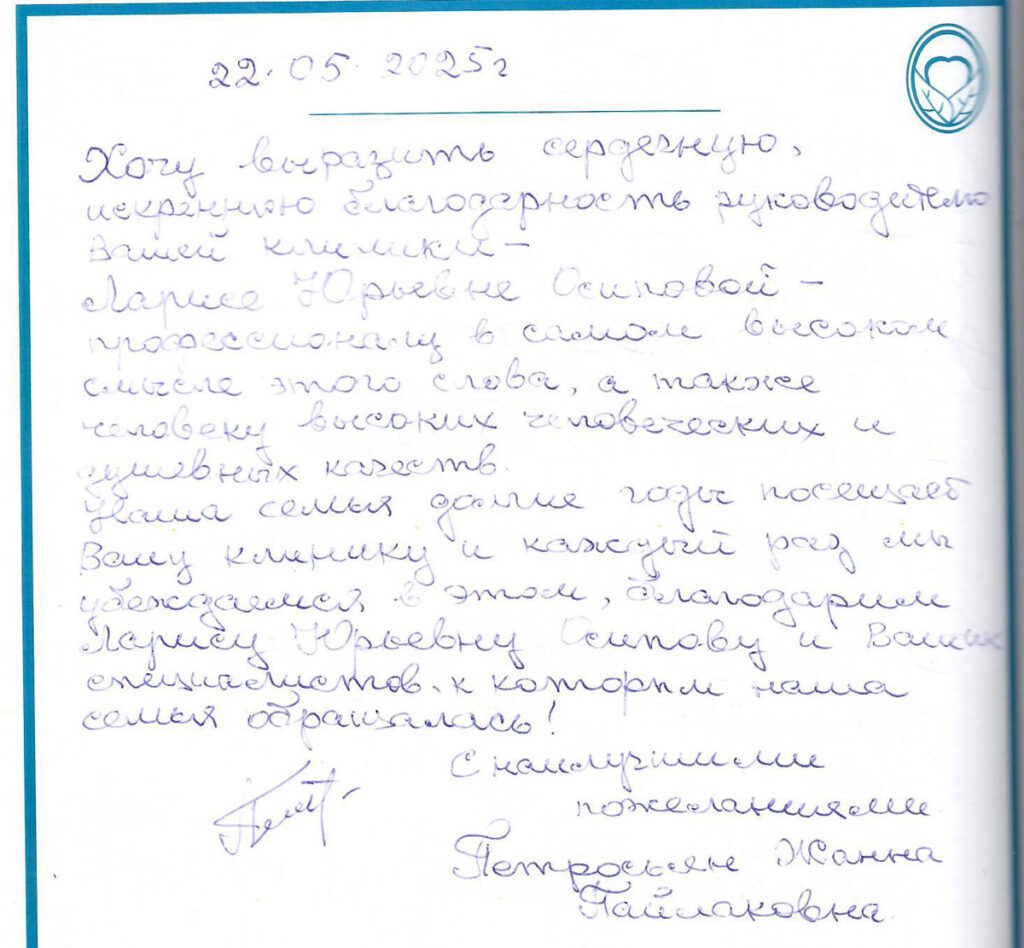 22.05.2025г
Хочу выразить сердечную,
искреннюю благодарность руководителю
Вашей клиники –
Ларисе Юрьевне Осиповой –
профессионалу в самом высоком
смысле этого слова, а также
человеку высоких человеческих и
душевных качеств.
Наша семья долгие годы посещает
Вашу клинику и каждый раз мы
убеждаемся в этом, благодарим
Ларису Юрьевну Осипову и Ваших
специалистов, к которым наша
семья обращалась!
С наилучшими
пожеланиями
Петросьян Жанна
Пайлаковна